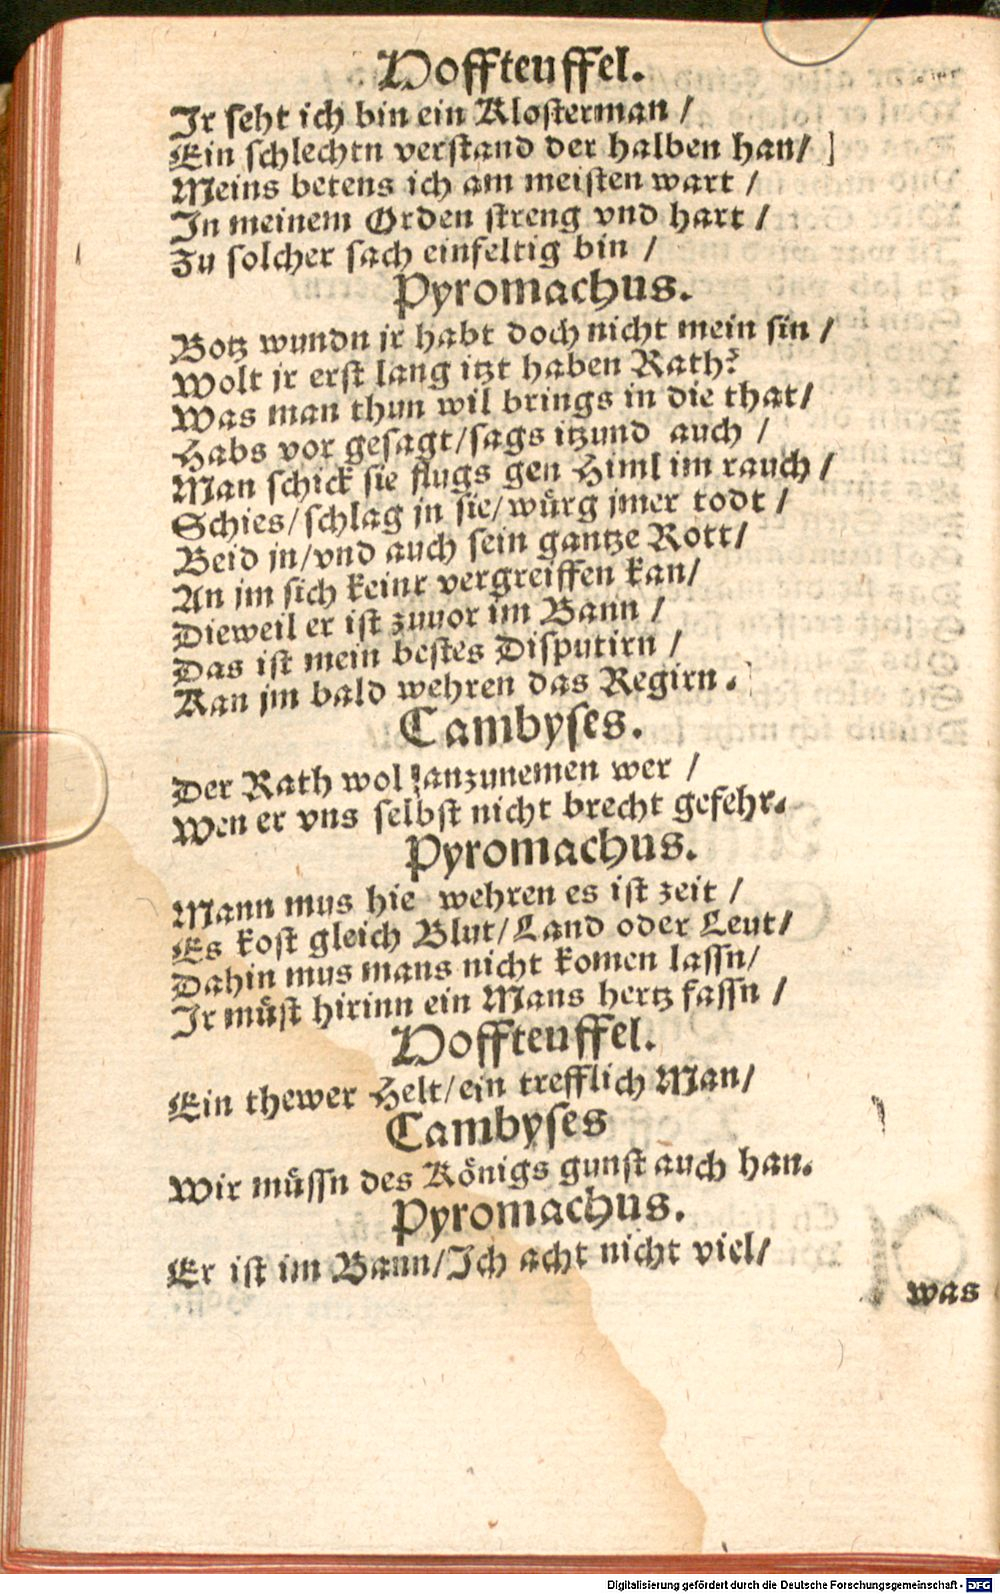 Hoffteuffel.
Ir seht ich bin ein Klosterman /
Ein schlechtn verstand der halben han/
Meins betens ich am meisten wart /
In meinem Orden streng vnd hart /
Zu solcher sach einfeltig bin /
Pyromachus.
Botz wundn jr habt doch nicht mein sin /
Wolt jr erst lang itzt haben Rath?
Was man thun wil brings in die that/
Habs vor gesagt/sags itzund auch /
Man schick sie flugs gen Himl im rauch /
Schies/schlag jn sie/würg jmer todt /
Beid jn/vnd auch sein gantze Rott/
An jm sich keinr vergreiffen kan/
Dieweil er ist zuuor im Bann /
Das ist mein bestes Disputirn /
Kan jm bald wehren das Regirn.
Cambyses.
Der Rath wol anzunemen wer /
Wen er vns selbst nicht brecht gefehr.
Pyromachus.
Mann mus hie wehren es ist zeit /
Es kost gleich Blut/Land oder Leut/
Dahin mus mans nicht komen lassn/
Ir müst hirinn ein Mans hertz fassn /
Hoffteuffel.
Ein thewer Helt/ein trefflich Man/
Cambyses
Wir müssn des Königs gunst auch han.
Pyromachus.
Er ist im Bann/Ich acht nicht viel/
was
Digitalisierung gefördert durch die Deutsche Forschungsgemeinschaft - DFG